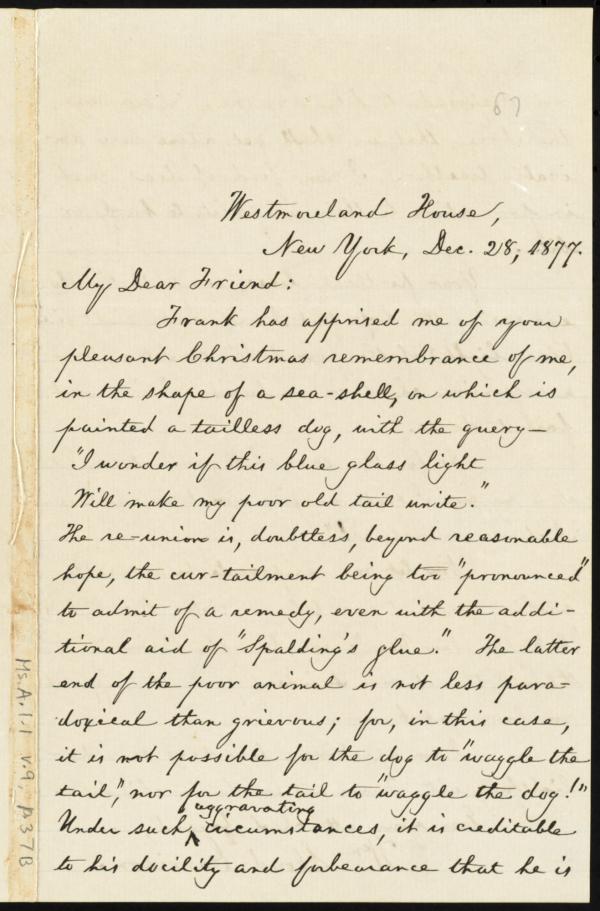 67
Westmoreland House,
New York, Dec. 28, 1877.
My Dear Friend:
Frank has apprised me of your
pleasant Christmas remembrance of me,
in the shape of a sea-shell, on which is
painted a tailless dog, with the query—
"I wonder if this blue glass light
Will make my poor old tail unite."
The re-union is, doubtless, beyond reasonable
hope, the cur-tailment being too "pronounced"
to admit of a remedy, even with the addi-
tional aid of "Spalding's glue." The latter
end of the poor animal is not less para-
doxical than grievous; for, in this case,
it is not possible for the dog to "waggle the
tail", nor for the tail to "waggle the dog!"
aggravating
Under such ^ circumstances, it is creditable
to his docility and forbearance that he is
Ms.A.1.1 v.9, p.37B